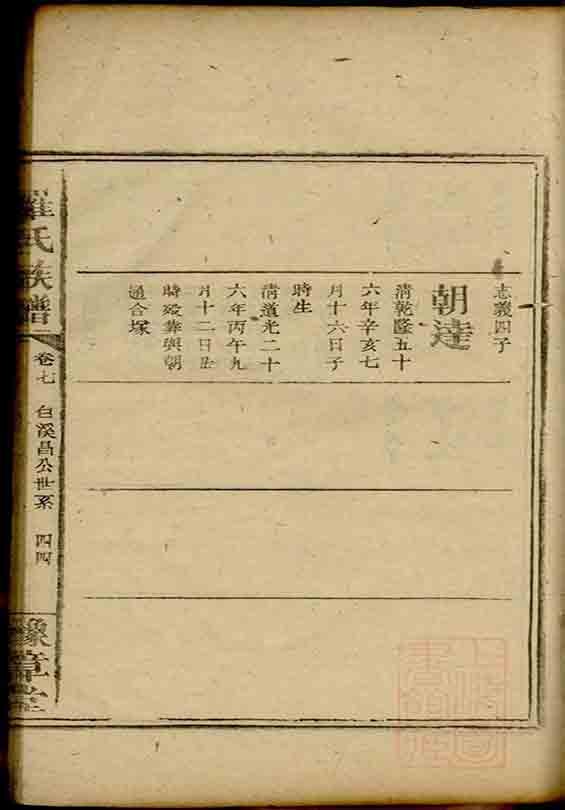 志義四子
朝達
清乾隆五十
六年辛亥七
月十六日子
時生
清道光二十
六年丙午九
月十二日丑
時歿葬與朝
通合塚
羅氏族譜
卷七
白溪昌公世系
四四
豫章堂